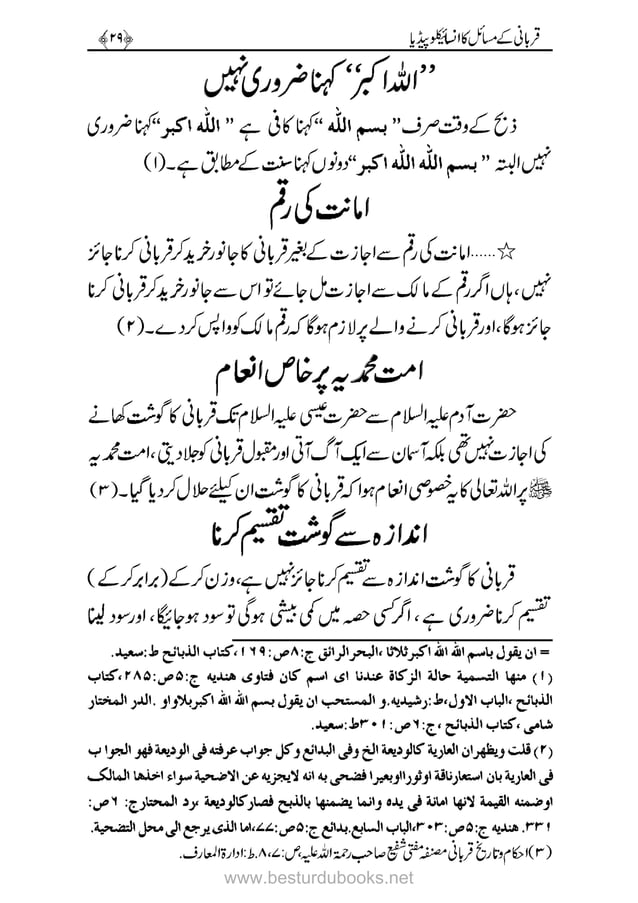 قربانی کے مسائل کا انسائیکلوپیڈیا ﴿۲۹﴾
”اللہ اکبر“ کہنا ضروری نہیں
ذبح کے وقت صرف ” بسم اللہ “ کہنا کافی ہے ” اللہ اکبر “ کہنا ضروری
نہیں البتہ ” بسم اللہ اللہ اکبر“ دونوں کہنا سنت کے مطابق ہے۔ (۱)
امانت کی رقم
☆......امانت کی رقم سے اجازت کے بغیر قربانی کا جانور خرید کر قربانی کرنا جائز
نہیں، ہاں اگر رقم کے مالک سے اجازت مل جائے تو اس سے جانور خرید کر قربانی کرنا
جائز ہوگا، اور قربانی کرنے والے پر لازم ہوگا کہ رقم مالک کو واپس کردے۔ (۲)
امت محمدیہ پر خاص انعام
حضرت آدم علیہ السلام سے حضرت عیسی علیہ السلام تک قربانی کا گوشت کھانے
کی اجازت نہیں تھی بلکہ آسمان سے ایک آگ آتی اور مقبول قربانی کو جلا دیتی، امت محمدیہ
ﷺ پر اللہ تعالی کا یہ خصوصی انعام ہوا کہ قربانی کا گوشت ان کیلئے حلال کردیا گیا۔ (۳)
اندازہ سے گوشت تقسیم کرنا
قربانی کا گوشت اندازہ سے تقسیم کرنا جائز نہیں ہے، وزن کرکے (برابر کرکے)
تقسیم کرنا ضروری ہے، اگر کسی حصہ میں کمی بیشی ہوگی تو سود ہوجائیگا، اور سود لینا
= ان یقول باسم اللہ اللہ اکبر ثلاثا ،البحرالرائق ج:۸ ص:۱۶۹، کتاب الذبائح ط:سعید.
(۱) منها التسمیة حالة الزکاة عندنا ای اسم کان فتاوی هندیه ج:۵ ص:۲۸۵،کتاب
الذبائح ،الباب الاول،ط:رشیدیه.و المستحب ان یقول بسم اللہ اللہ اکبربلاواو .الدر المختار
شامی ، کتاب الذبائح ، ج:۶ ص:۳۰۱ ط:سعید.
(۲) قلت ویظهران العاریة کالودیعة الخ وفی البدائع وکل جواب عرفته فی الودیعة فهو الجواب
فی العاریة بان استعارناقة اوثورااوبعیرا فضحی به انه لایجزیه عن الاضحیة سواء اخذها المالک
اوضمنه القیمة لانها امانة فی یده وانما یضمنها بالذبح فصارکالودیعة ،رد المحتارج: ۶ ص:
۳۳۱. هندیه ج:۵ ص:۳۰۳،الباب السابع.بدائع ج:۵ ص:۷۷،اما الذی یرجع الی محل التضحیة.
(۳) احکام و تاریخ قربانی مصنفہ مفتی شفیع صاحب رحمة اللہ علیہ، ص:۷،۸. ط:ادارة المعارف.
www.besturdubooks.net